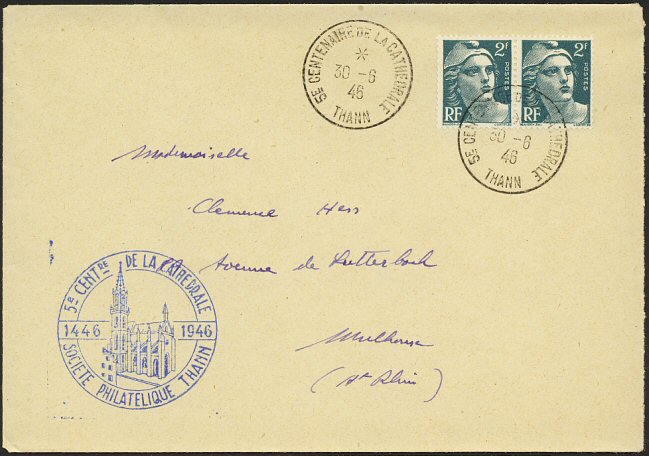 5E CENTENAIRE DE LA CATHEDRALE
30 - 6
46
THANN
2F 2F
POSTES POSTES
RF RF
5E CEN CATHEDRALE
30 - 6
46
THANN
Mademoiselle
Clemence Hess
Avenue de Lutterbach
Mulhouse
(Ht Rhin)
5e CENTRE DE LA CATHEDRALE
1446 1946
SOCIETE PHILATELIQUE THANN